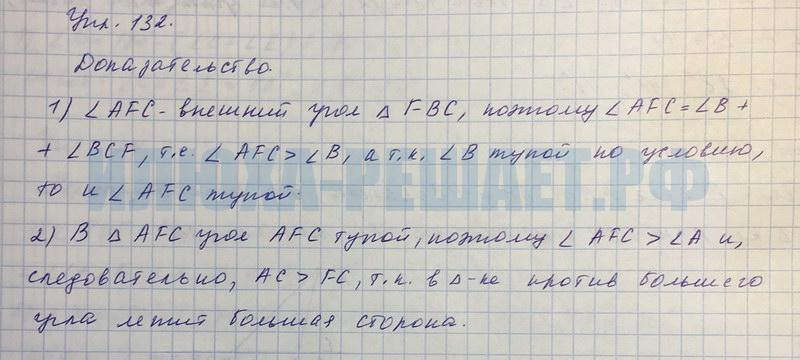 Упр. 132.
Доказательство.
1) ∠AFC - внешний угол △ FBC, поэтому ∠AFC = ∠B +
+ ∠BCF, т.е. ∠AFC > ∠B, а т.к. ∠B тупой по условию,
то и ∠AFC тупой.
ИЛЮХА-РЕШАЕТ.РФ
2) В △ AFC угол AFC тупой, поэтому ∠AFC > ∠A и,
следовательно, AC > FC, т.к. в △-ке против большего
угла лежит большая сторона.